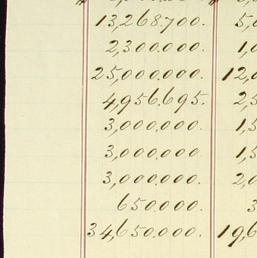 13,268.700. 5,
2,300.000. 1,
25,000.000. 12,
4,956.695. 2
3,000.000. 1,
3,000.000. 1,
3,000.000. 2,
650.000. 3
34,650.000. 19,6